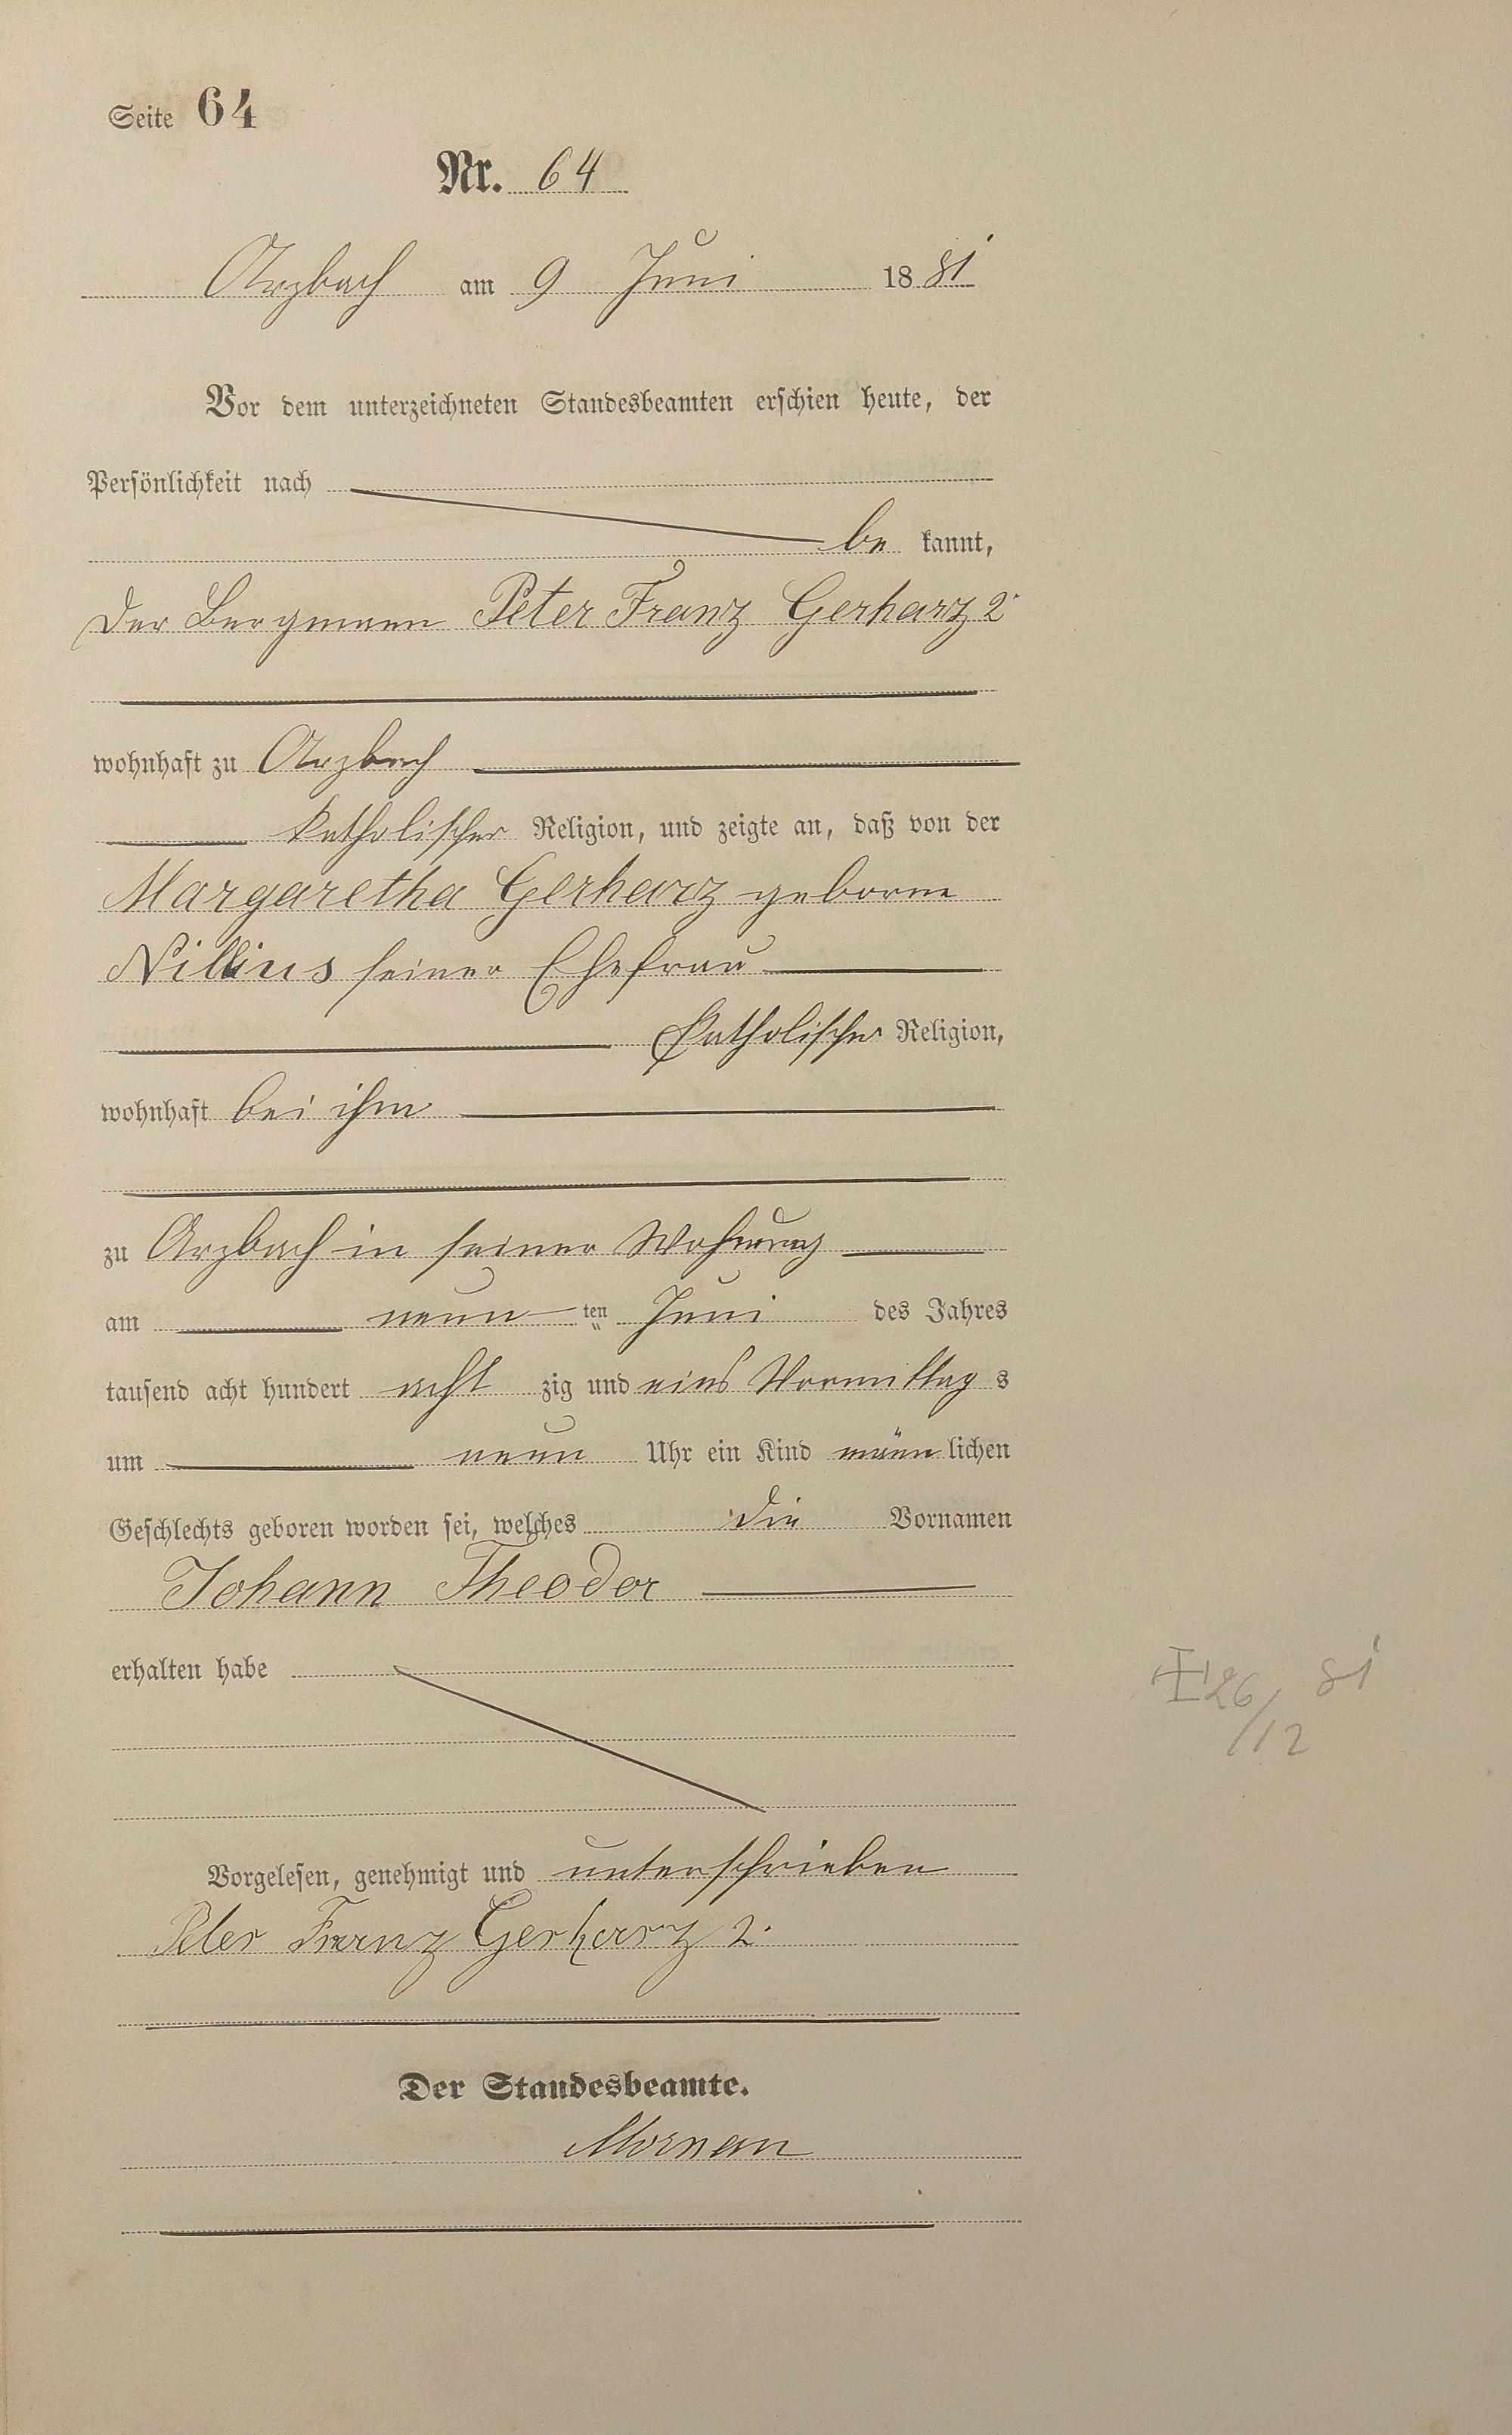 Seite 64
Nr. 64
Arzbach am 9 Juni 1881
Vor dem unterzeichneten Standesbeamten erschien heute, der
Persönlichkeit nach
be kannt,
der Bergmann Peter Franz Gerharz 2.
wohnhaft zu Arzbach
katholischer Religion, und zeigte an, daß von der
Margaretha Gerharz geborne
seiner Ehefrau
katholischer Religion,
wohnhaft bei ihm
zu Arzbach in seiner Wohnung
am neun ten Juni des Jahres
tausend acht hundert acht zig und eins Vormittag s
um neun Uhr ein Kind männlichen
Geschlechts geboren worden sei, welches die Vornamen
Johann Theodor
erhalten habe
+ 26/12 81
Vorgelesen, genehmigt und unterschrieben
Peter Franz Gerharz 2.
Der Standesbeamte.